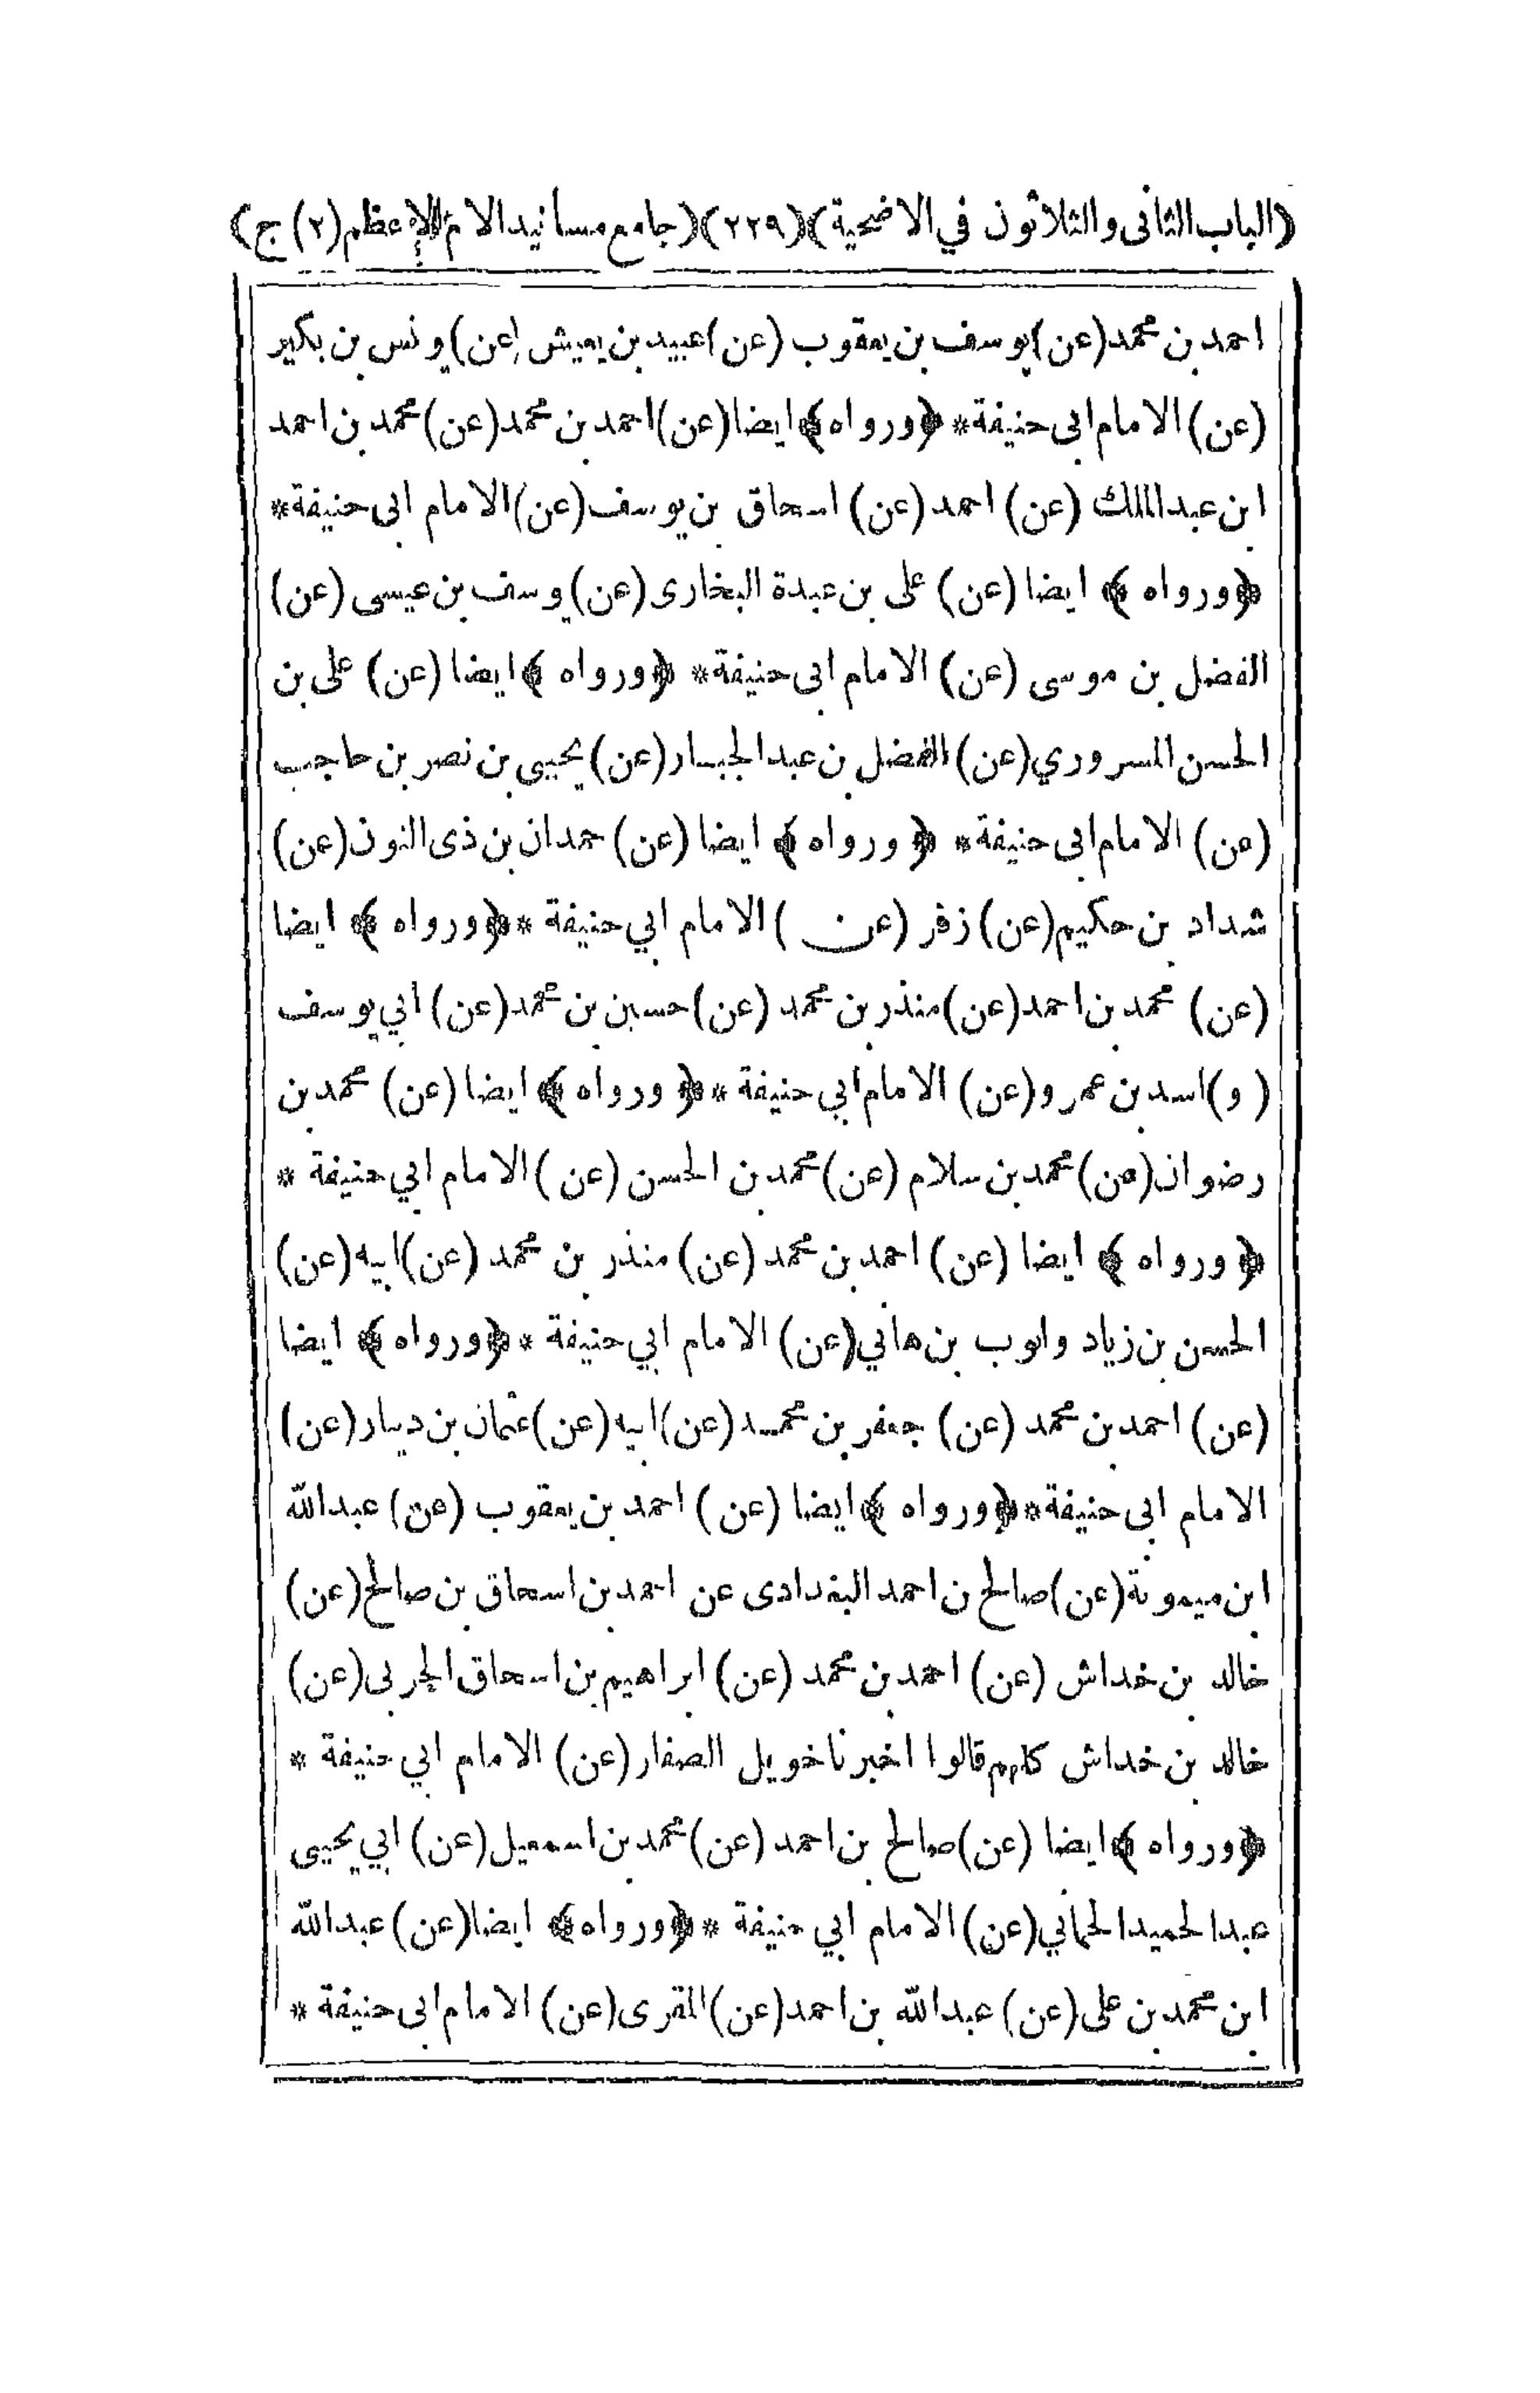 (الباب الثانى والثلاثون في الاضحية)(٢٢٩)(جامع مسانيد الامام الاعظم(٢)ج)
احمد بن محمد(عن)يوسف بن يعقوب (عن)عبيد بن يعيش(عن)يونس بن بكير
(عن)الامام ابى حنيفة* ﴿ورواه﴾ايضا(عن)احمد بن محمد(عن)محمد بن احمد
ابن عبد الملك (عن) احمد(عن) اسحاق بن يوسف(عن)الامام ابى حنيفة*
﴿ورواه ﴾ ايضا (عن) على بن عبدة البخارى(عن)يوسف بن عيسى(عن)
الفضل بن موسى (عن) الامام ابى حنيفة* ﴿ورواه ﴾ايضا(عن) على بن
الحسن المسروري(عن)الفضل بن عبد الجبار(عن)يحيى بن نصر بن حاجب
(عن) الامام ابى حنيفة* ﴿ ورواه ﴾ ايضا (عن) حمدان بن ذى النون(عن)
شداد بن حكيم(عن)زفر (عن )الامام ابي حنيفة *﴿ورواه ﴾ ايضا
(عن) محمد بن احمد(عن)منذر بن محمد (عن)حسين بن محمد(عن)ابي يوسف
( و)اسد بن عمرو(عن) الامام ابي حنيفة *﴿ ورواه ﴾ ايضا(عن) محمد بن
رضوان(عن)محمد بن سلام (عن)محمد بن الحسن (عن )الامام ابي حنيفة *
﴿ ورواه ﴾ ايضا (عن) احمد بن محمد (عن) منذر بن محمد (عن)ابيه(عن)
الحسن بن زياد وايوب بن هاني(عن) الامام ابي حنيفة *﴿ورواه ﴾ ايضا
(عن) احمد بن محمد (عن) جعفر بن محمد(عن)ابيه(عن)عثمان بن دينار(عن)
الامام ابى حنيفة*﴿ورواه ﴾ايضا (عن ) احمد بن يعقوب (عن) عبد الله
ابن ميمونة(عن)صالح بن احمد البغدادى عن احمد بن اسحاق بن صالح(عن)
خالد بن خداش (عن) احمد بن محمد (عن) ابراهيم بن اسحاق الحربى(عن)
خالد بن خداش كلهم قالوا اخبرنا خويل الصفار(عن) الامام ابي حنيفة *
﴿ورواه ﴾ايضا (عن)صالح بن احمد (عن)محمد بن اسمعيل(عن) ابي يحيى
عبد الحميد الحماني(عن)الامام ابي حنيفة *﴿ورواه﴾ ايضا(عن)عبد الله
ابن محمد بن على(عن) عبد الله بن احمد(عن)المقرى(عن) الامام ابى حنيفة *